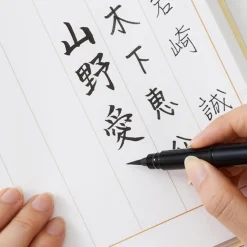 岩崎誠
木下恵
山野愛